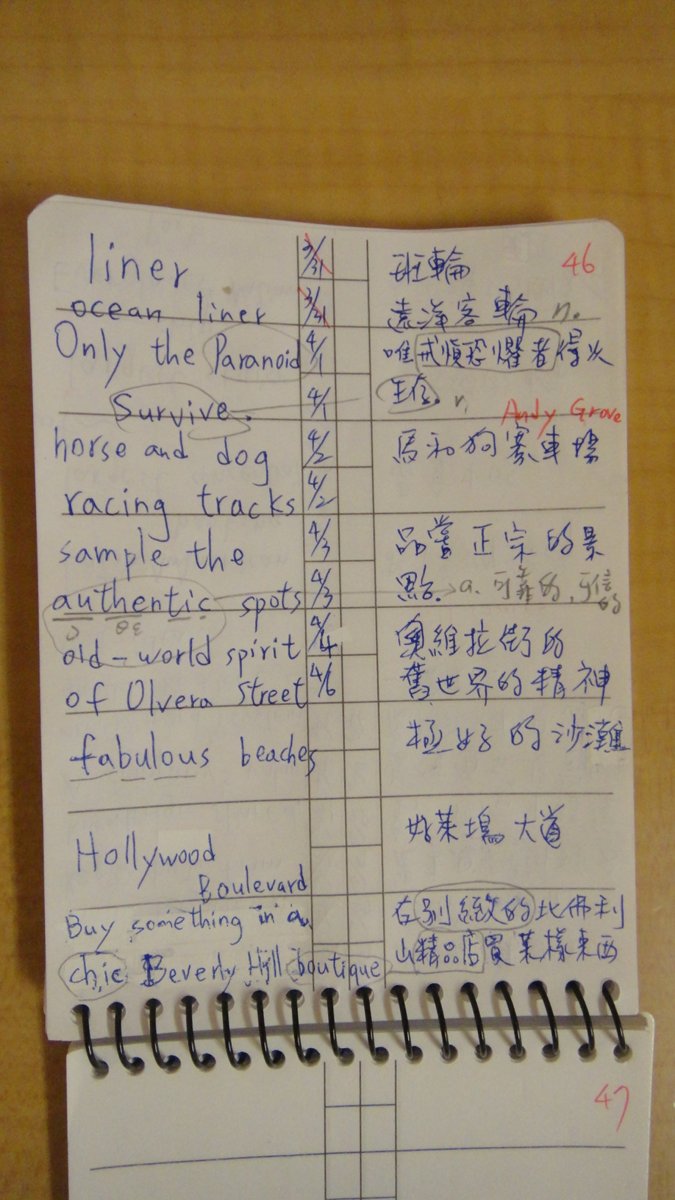 liner 3/31 班輪 46
ocean liner 3/31 遠洋客輪 n.
Only the Paranoid 4/1 唯戒慎恐懼者得以
Survive. 4/1 生存。 v.
Andy Grove
horse and dog 4/2 馬和狗賽車場
racing tracks 4/2
sample the 4/3 品嘗正宗的景
authentic spots 4/3 點. a. 可靠的,可信的
old-world spirit 4/4 奧維拉街的
of Olvera Street 4/6 舊世界的精神
fabulous beaches 極好的沙灘
Hollywood 好萊塢大道
Boulevard
Buy something in a 在別緻的比佛利
chic Beverly Hill boutique 山精品店買某樣東西
47